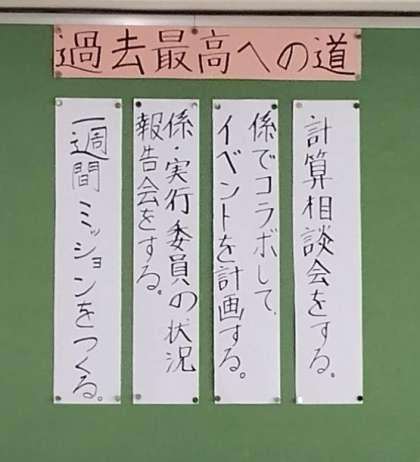 過去最高への道
計算相談会をする。
係でコラボして、
イベントを計画する。
係・実行委員の状況
報告会をする。
一週間ミッションをつくる。